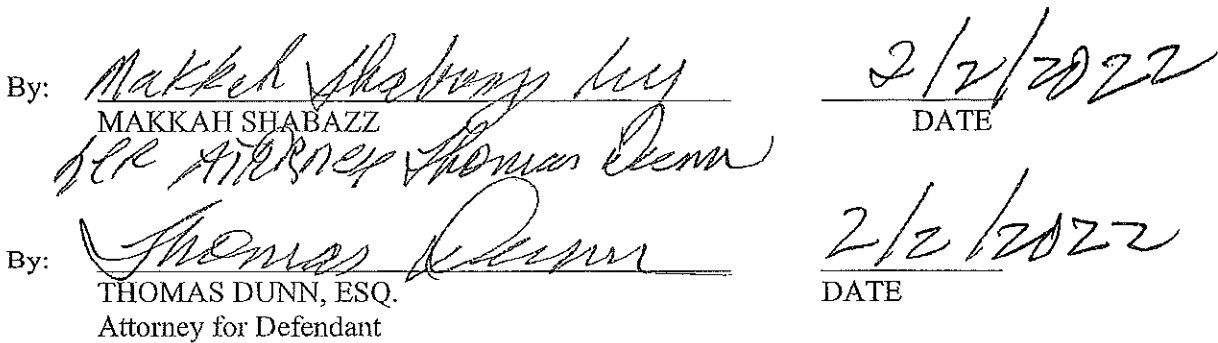 By: Makkah Shabazz by 2/2/2022
MAKKAH SHABAZZ DATE
her Attorney Thomas Dunn
By: Thomas Dunn 2/2/2022
THOMAS DUNN, ESQ. DATE
Attorney for Defendant